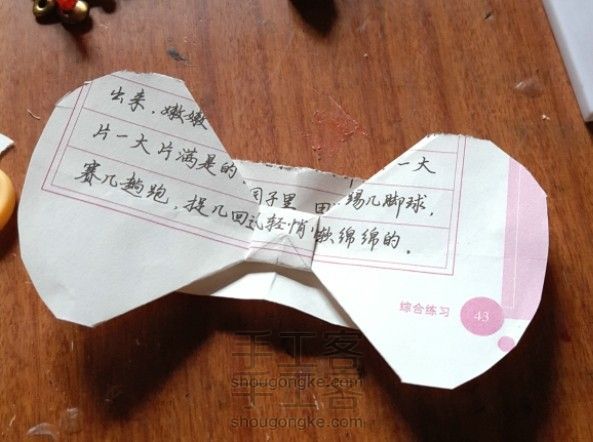 出来，嫩嫩
片一大片满是的 一大
赛几趟跑，捉几回 轻悄 园子里 田 踢几脚球，
软绵绵的。
综合练习 43
手工客
shougongke.com
手工客
shougongke.com